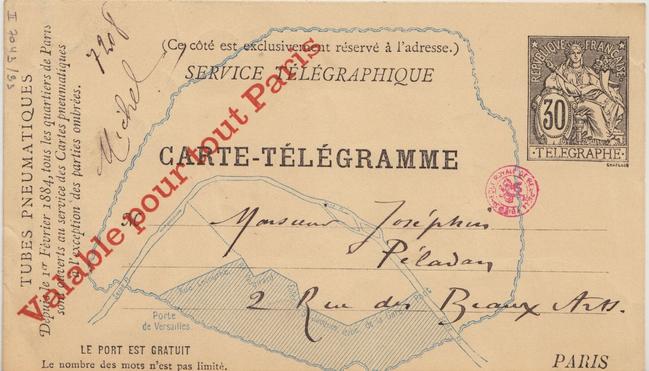 (Ce côté est exclusivement réservé à l'adresse.)
SERVICE TÉLÉGRAPHIQUE
RÉPUBLIQUE FRANÇAISE
30
TÉLÉGRAPHE
CHAPLAIN
CARTE-TÉLÉGRAMME
Valable pour tout Paris
7208
Michel
TUBES PNEUMATIQUES
Depuis le 1er Février 1884, tous les quartiers de Paris
sont ouverts au service des Cartes pneumatiques
à l'exception des parties ombrées.
Monsieur Joséphin
Péladan
2 Rue des Beaux Arts.
Porte
de Versailles
LE PORT EST GRATUIT
Le nombre des mots n'est pas limité.
PARIS